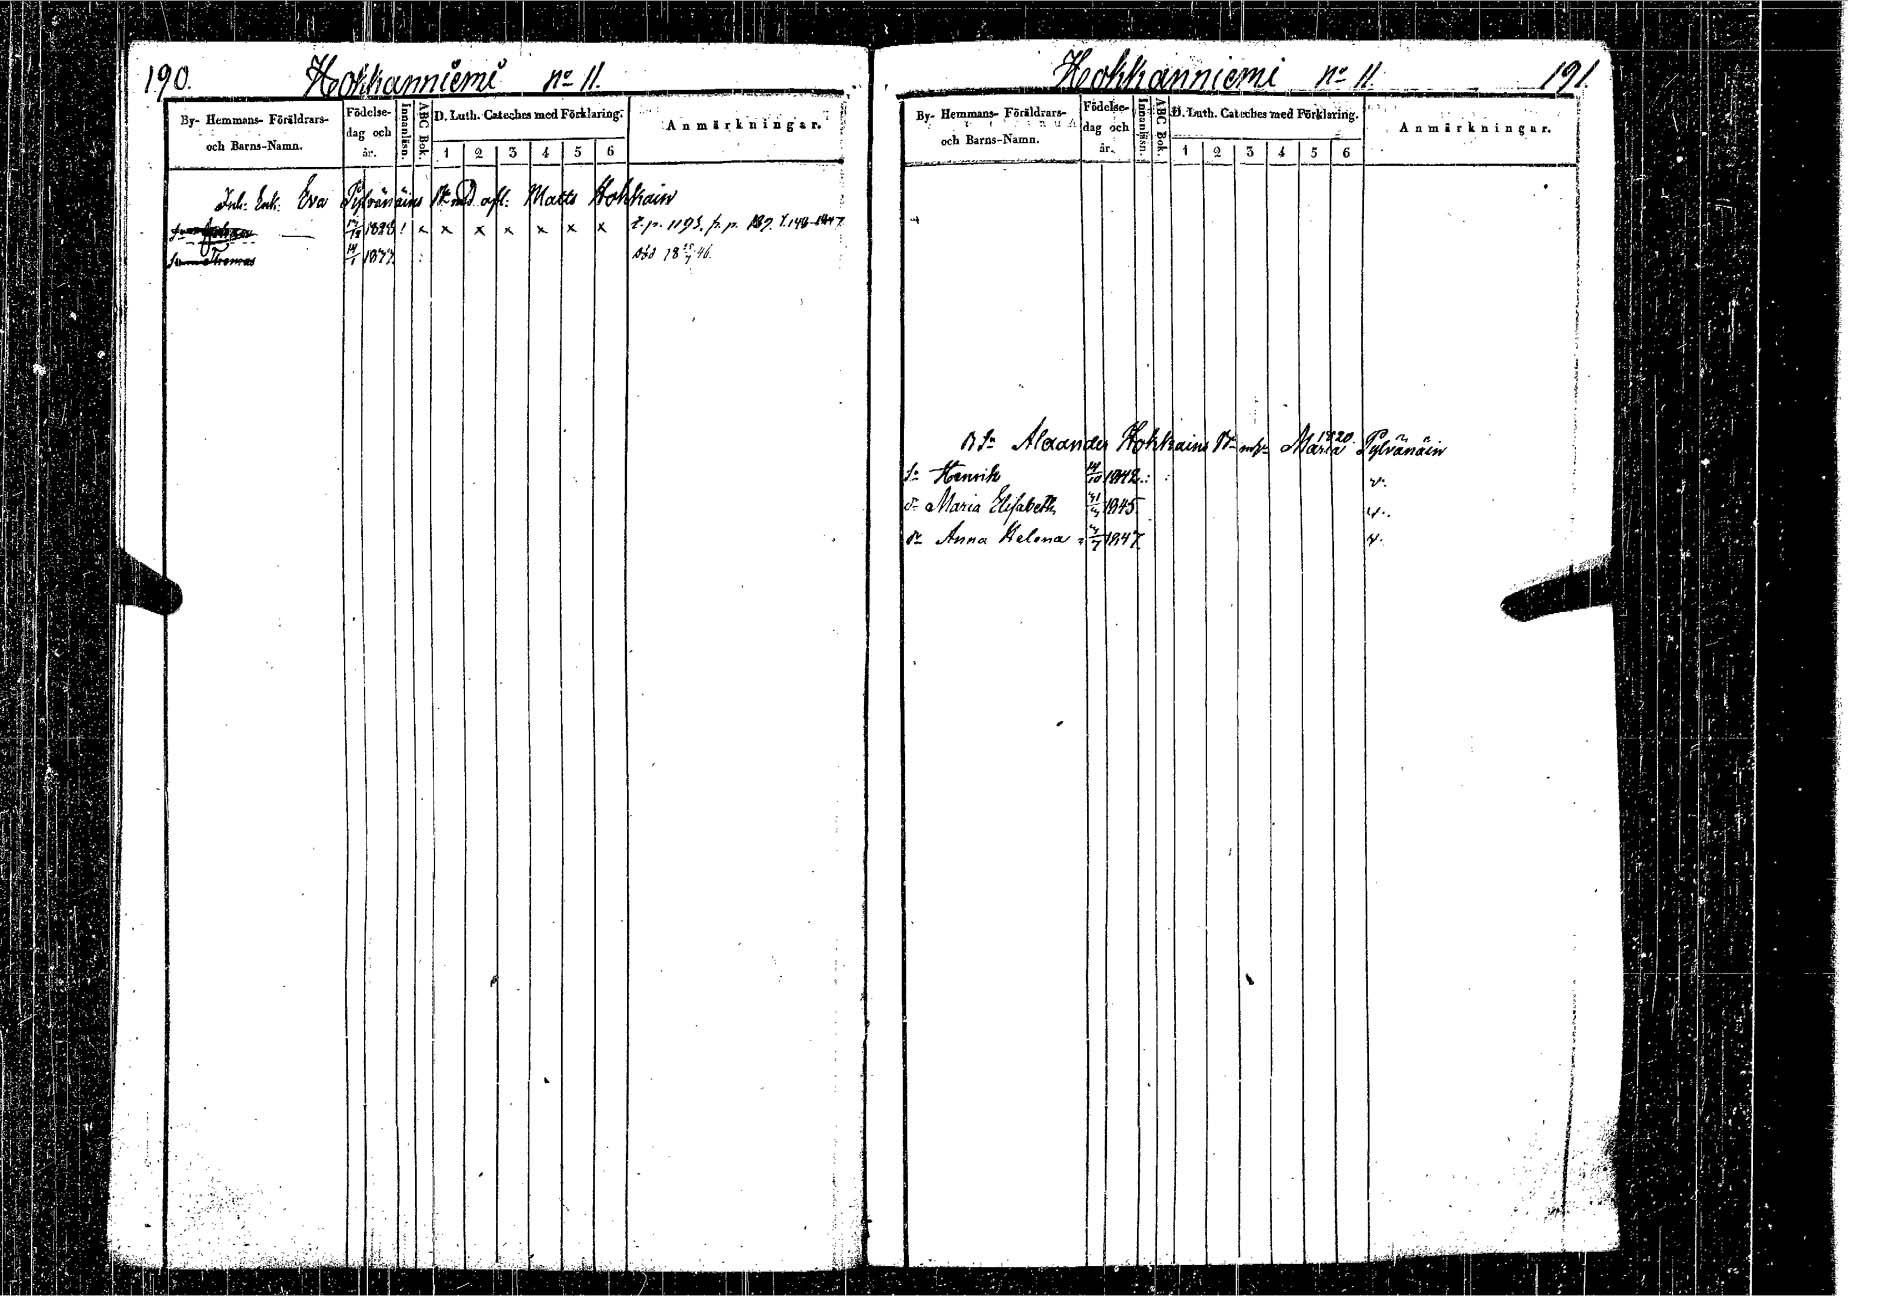 190. Hokkanniemi no 11.
By- Hemmans- Föräldrars- och Barns-Namn.
Födelse- dag och år.
Innanläsn.
ABC Bok.
D. Luth. Cateches med Förklaring.
1 2 3 4 5 6
Anmärkningar.
Inh: Enk: Eva Pylvänäins Bn med afl: Matts Hokkain
Sn Johan 1828 x x x x x x x
Sn Thomas död 18 46.
Hokkanniemi no 11. 191.
By- Hemmans- Föräldrars- och Barns-Namn.
Födelse- dag och år.
Innanläsn.
ABC Bok.
D. Luth. Cateches med Förklaring.
1 2 3 4 5 6
Anmärkningar.
Alexander Hokkains Bn Maria 1820 Pylvänäin
Sn Henrik 14/10 1842 v.
Dr Maria Elisabeth 1845 v.
Dr Anna Helena 1847 v.